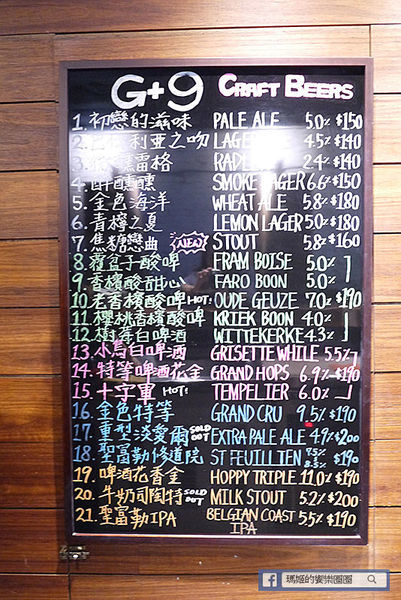 G+9 CRAFT BEERS
1. 初戀的滋味 PALE ALE 5.0% $150
2. 利亞之吻 LAGER 4.5% $140
3. 雷格 RADLER 2.4% $140
4. 醉醺醺 SMOKE LAGER 6.6% $150
5. 金色海洋 WHEAT ALE 5.8% $180
6. 青檸之夏 LEMON LAGER 5.0% $180
7. 焦糖戀曲 NEW STOUT 5.8% $160
8. 覆盆子酸啤 FRAM BOISE 5.0%
9. 香檳酸甜心 FARO BOON 5.0%
10. 老香檳酸啤 HOT! OUDE GEUZE 7.0% $190
11. 櫻桃香檳酸啤 KRIEK BOON 4.0%
12. 樹莓白啤酒 WITTEKERKE 4.3%
13. 水鳥白啤酒 GRISETTE WHILE 5.5%
14. 特等啤酒花金 GRAND HOPS 6.9% $190
15. 十字軍 HOT! TEMPELIER 6.0%
16. 金色特等 GRAND CRU 9.5% $190
17. 重型淡愛爾 SOLD OUT EXTRA PALE ALE 4.9% $200
18. 聖富勒修道院 ST FEUILLIEN 7.5% 8.5% $190
19. 啤酒花香金 HOPPY TRIPLE 11.0% $190
20. 牛奶司陶特 SOLD OUT MILK STOUT 5.2% $200
21. 聖富勒IPA BELGIAN COAST IPA 5.5% $190
瑪姬的饗樂圈圈